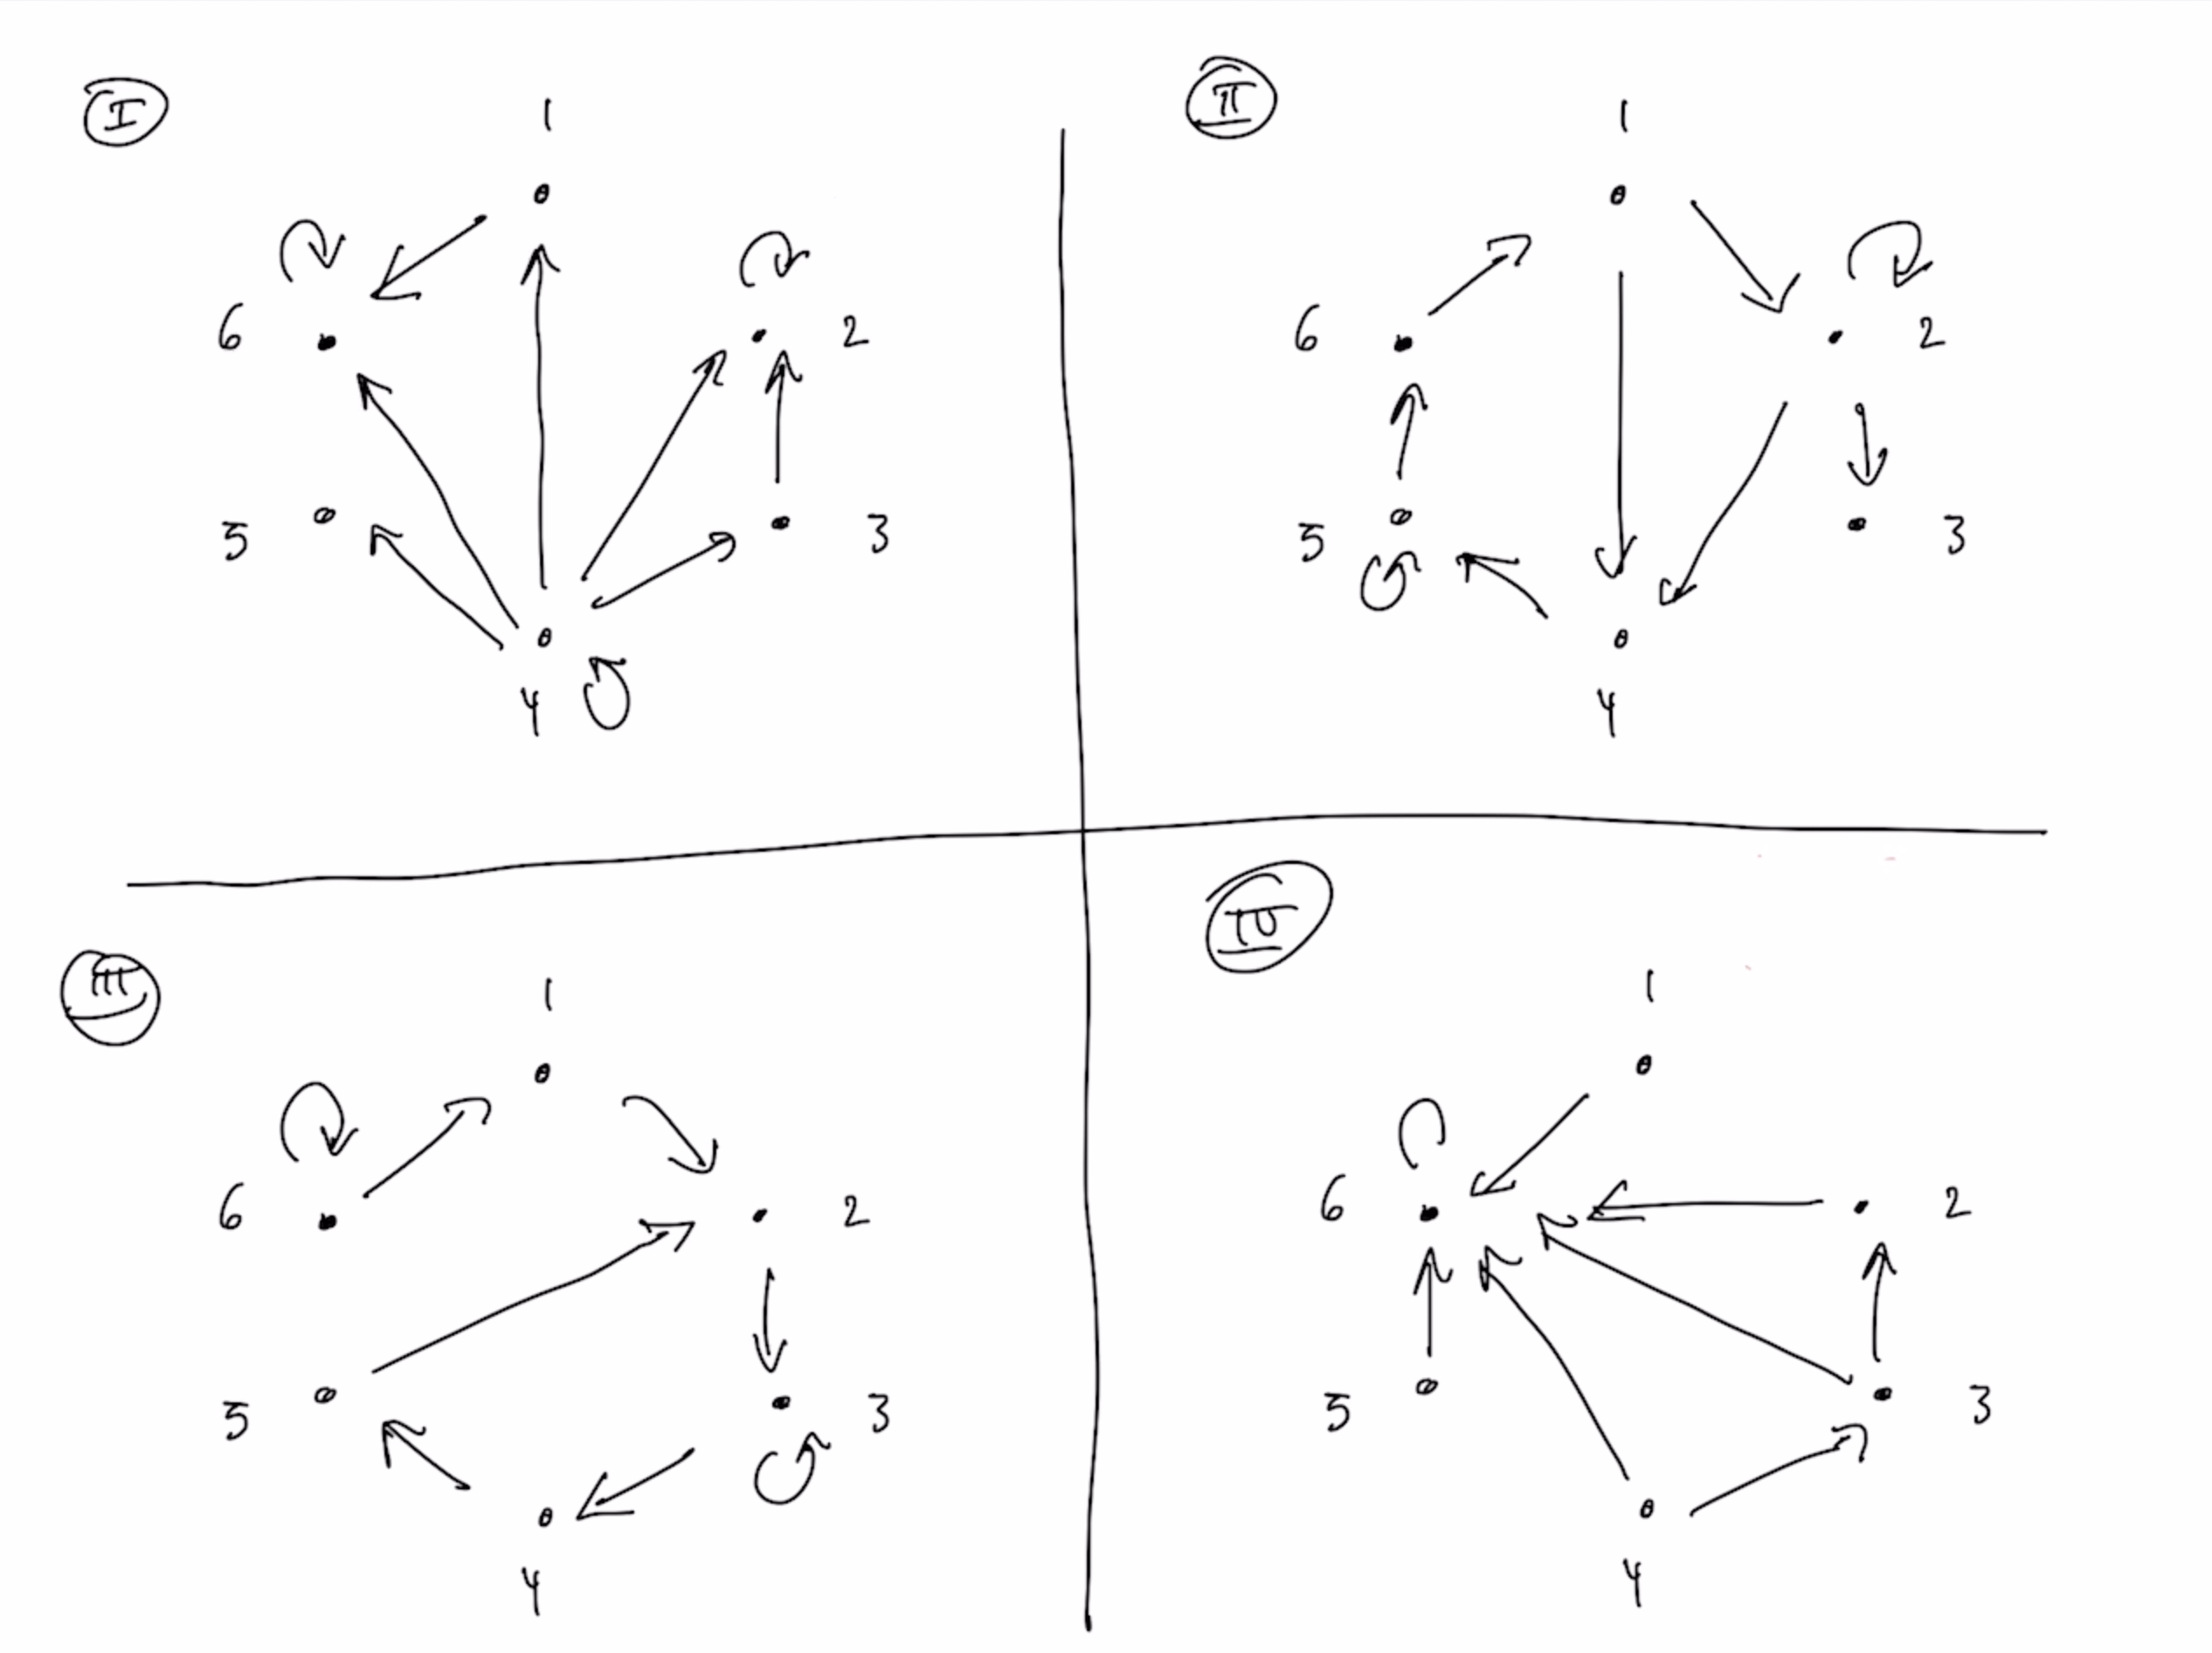 I
1
6
2
5
3
4
II
1
6
2
5
3
4
III
1
6
2
5
3
4
IV
1
6
2
5
3
4